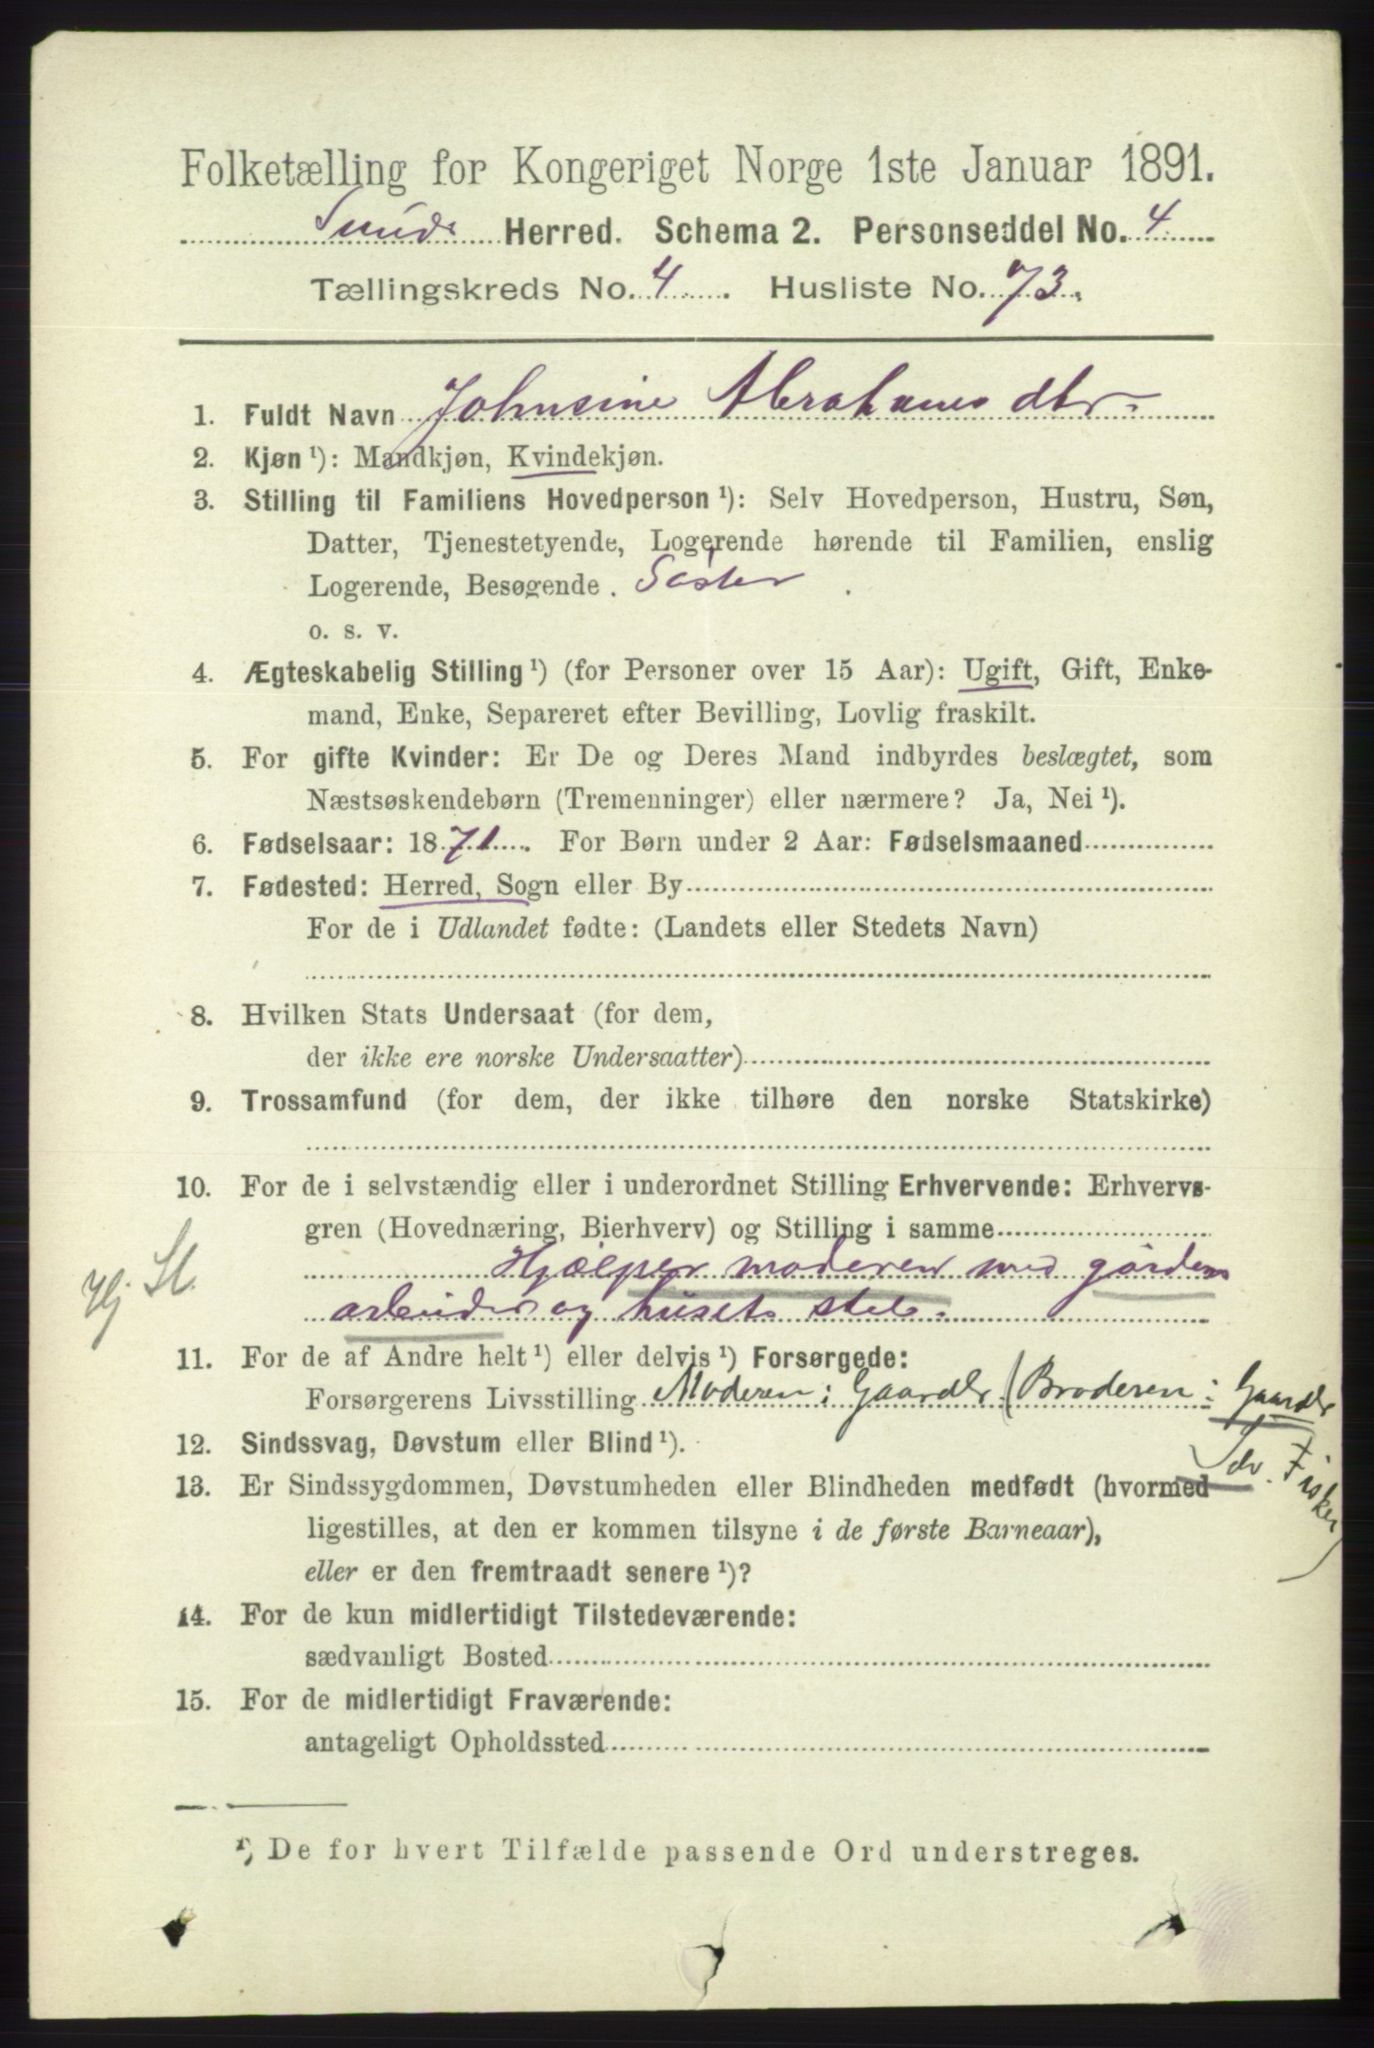 Folketælling for Kongeriget Norge 1ste Januar 1891.
Sund Herred. Schema 2. Personseddel No. 4
Tællingskreds No. 4. Husliste No. 73.
1. Fuldt Navn Johnsine Abrahams dtr.
2. Kjøn ¹): Mandkjøn, Kvindekjøn.
3. Stilling til Familiens Hovedperson ¹): Selv Hovedperson, Hustru, Søn,
Datter, Tjenestetyende, Logerende hørende til Familien, enslig
Logerende, Besøgende. Søster
o. s. v.
4. Ægteskabelig Stilling ¹) (for Personer over 15 Aar): Ugift, Gift, Enke-
mand, Enke, Separeret efter Bevilling, Lovlig fraskilt.
5. For gifte Kvinder: Er De og Deres Mand indbyrdes beslægtet, som
Næstsøskendebørn (Tremenninger) eller nærmere? Ja, Nei ¹).
6. Fødselsaar: 1871. For Børn under 2 Aar: Fødselsmaaned
7. Fødested: Herred, Sogn eller By
For de i Udlandet fødte: (Landets eller Stedets Navn)
8. Hvilken Stats Undersaat (for dem,
der ikke ere norske Undersaatter)
9. Trossamfund (for dem, der ikke tilhøre den norske Statskirke)
10. For de i selvstændig eller i underordnet Stilling Erhvervende: Erhvervs-
gren (Hovednæring, Bierhverv) og Stilling i samme
Hj. St.
Hjælper moderen med gårdens
arbeide og husets stel.
11. For de af Andre helt ¹) eller delvis ¹) Forsørgede:
Forsørgerens Livsstilling Moderen: Gaardbr (Broderen: Gaardbr
Selv. Fisker)
12. Sindssvag, Døvstum eller Blind ¹).
13. Er Sindssygdommen, Døvstumheden eller Blindheden medfødt (hvormed
ligestilles, at den er kommen tilsyne i de første Barneaar),
eller er den fremtraadt senere ¹)?
14. For de kun midlertidigt Tilstedeværende:
sædvanligt Bosted
15. For de midlertidigt Fraværende:
antageligt Opholdssted
¹) De for hvert Tilfælde passende Ord understreges.